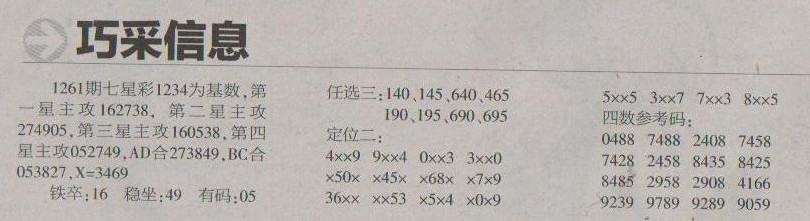 巧采信息
1261期七星彩1234为基数,第
一星主攻162738,第二星主攻
274905,第三星主攻160538,第四
星主攻052749,AD合273849,BC合
053827,X=3469
铁卒:16 稳坐:49 有码:05
任选三:140、145、640、465
190、195、690、695
定位二:
4××9 9××4 0××3 3××0
×50× ×45× ×68× ×7×9
36×× ××53 ×5×4 ×0×9
5××5 3××7 7××3 8××5
四数参考码:
0488 7488 2408 7458
7428 2458 8435 8425
8485 2958 2908 4166
9239 9789 9289 9059